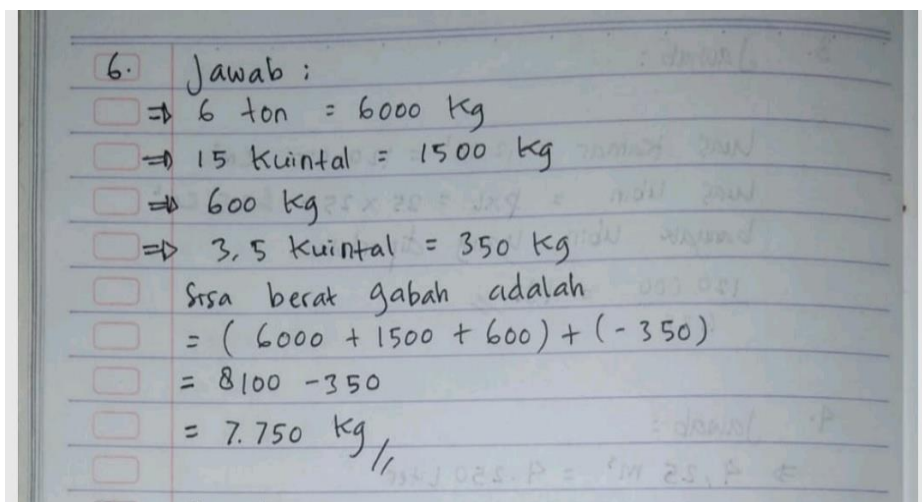 6. Jawab :
⇒ 6 ton = 6000 Kg
⇒ 15 Kuintal = 1500 Kg
⇒ 600 Kg
⇒ 3,5 Kuintal = 350 Kg
Sisa berat gabah adalah
= ( 6000 + 1500 + 600 ) + ( - 350 )
= 8100 - 350
= 7.750 Kg //